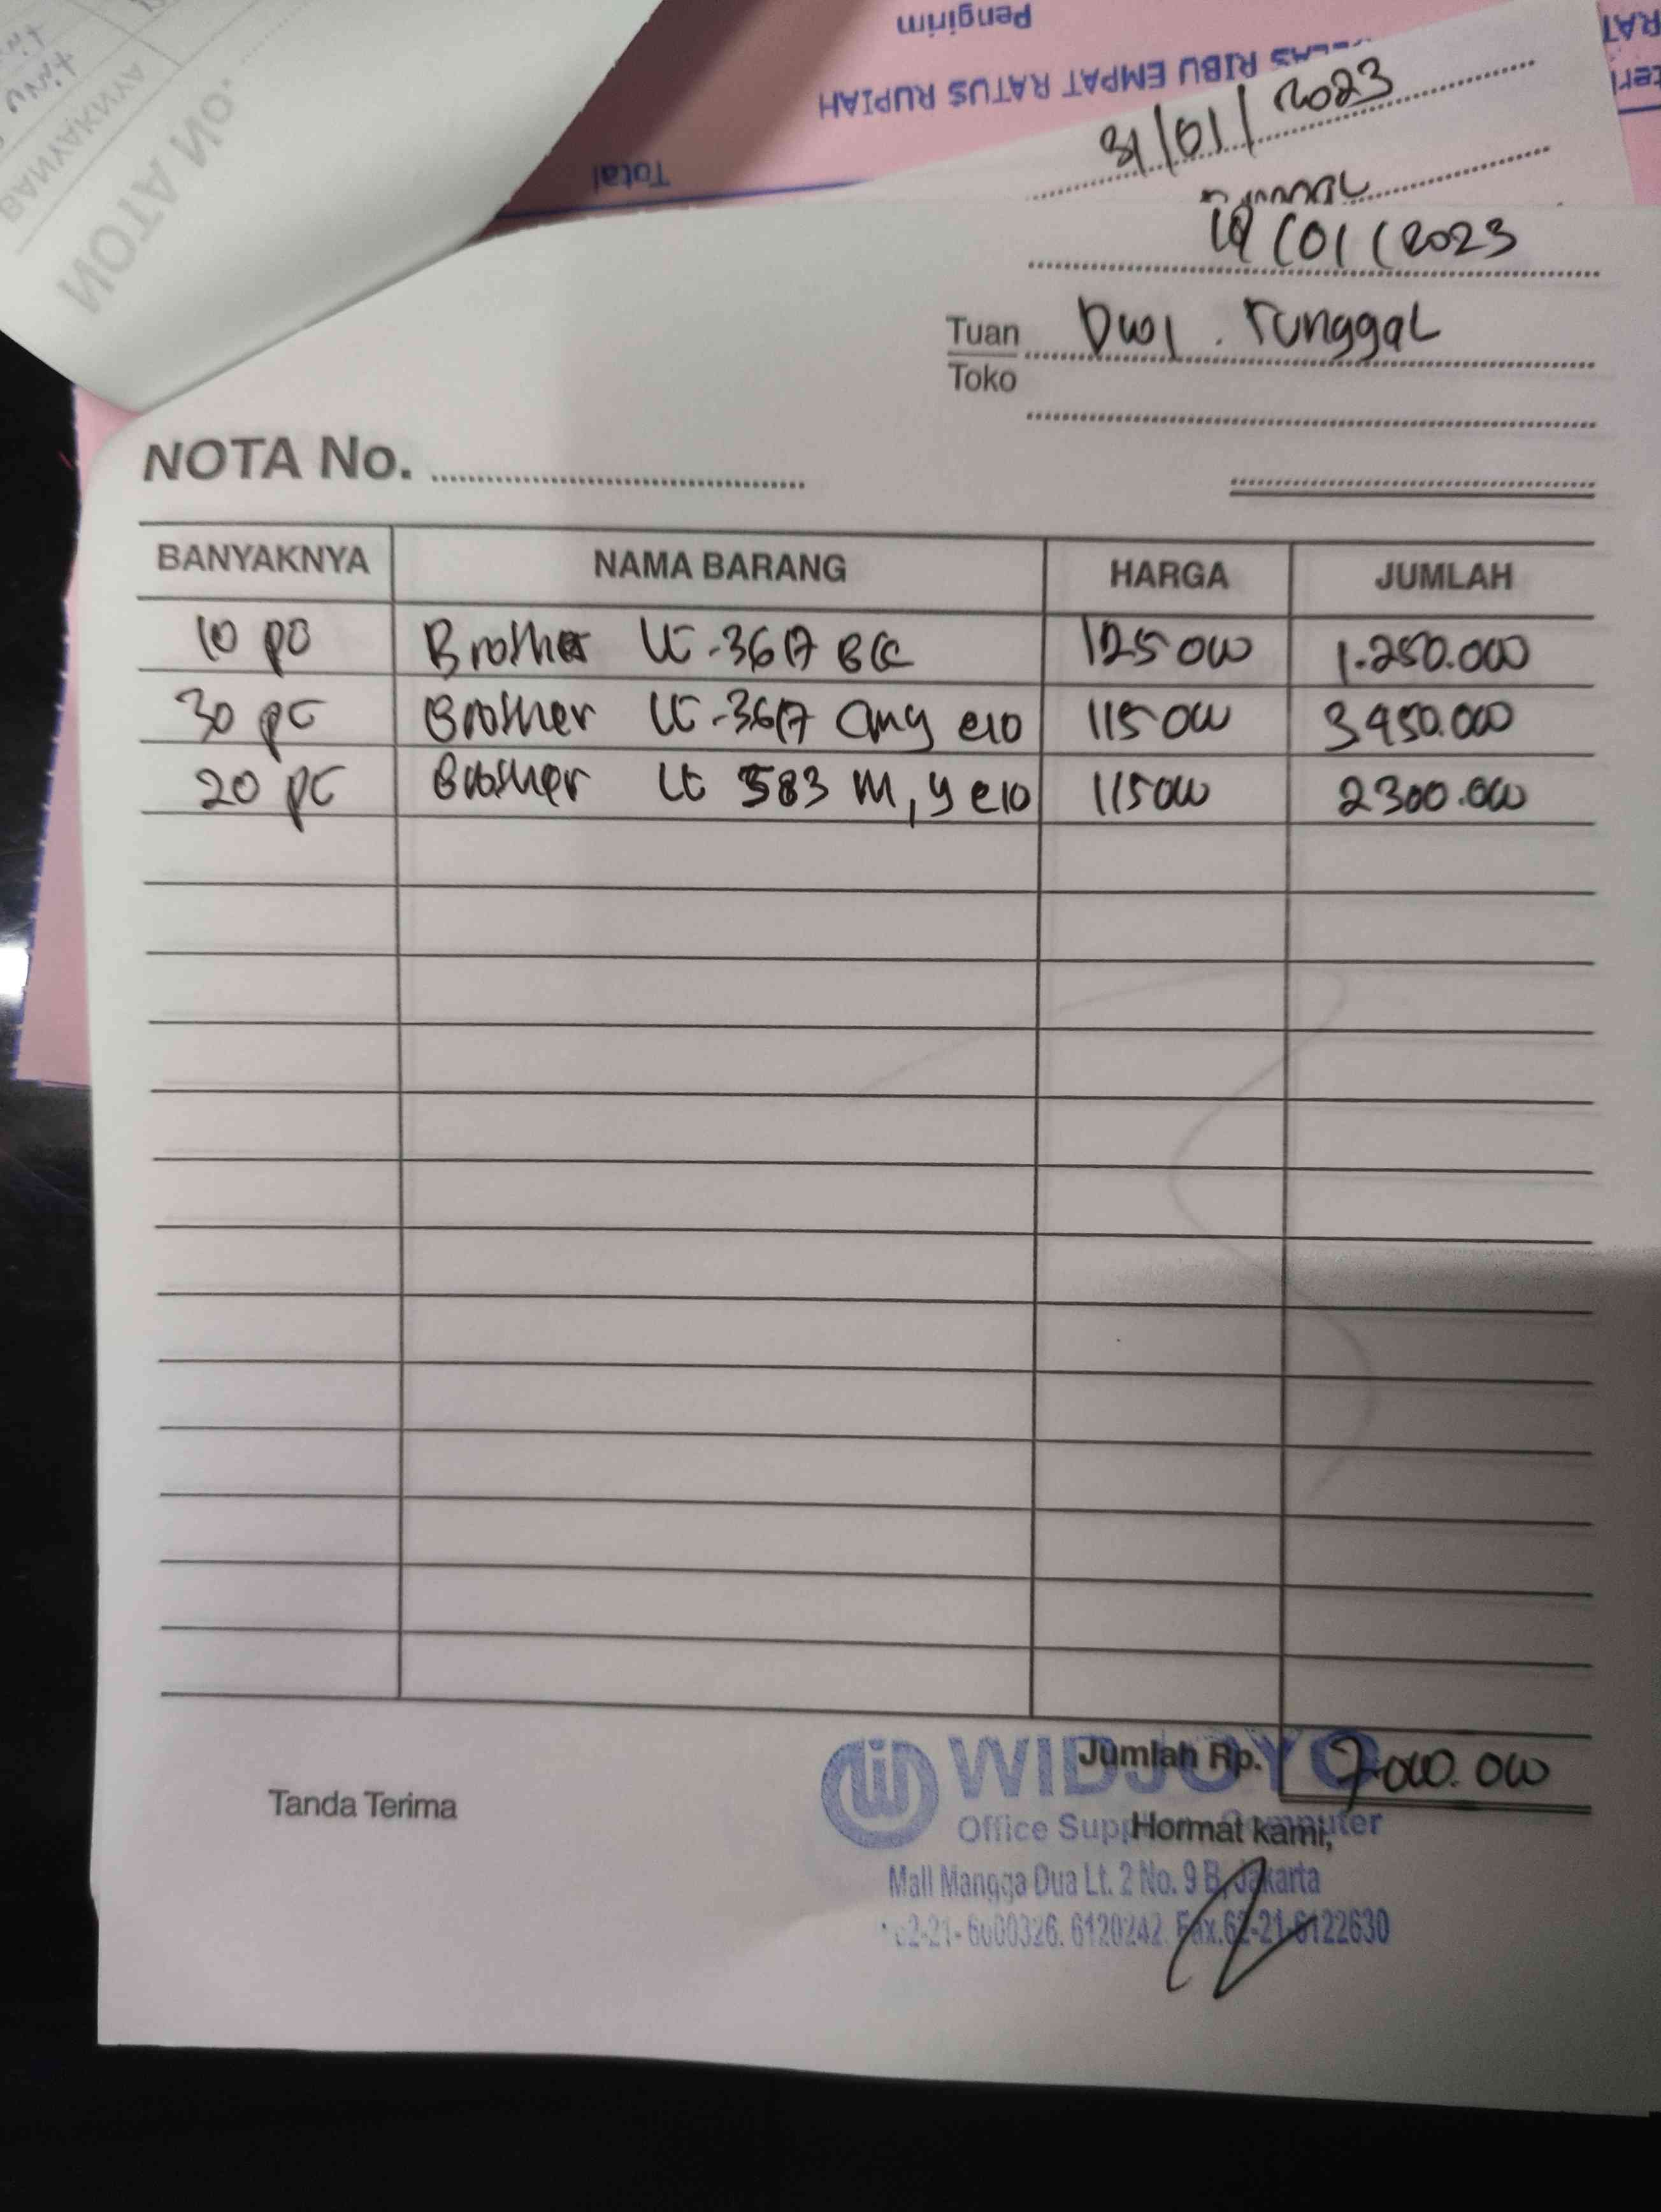 Pengirim
RIBU EMPAT RATUS RUPIAH
Total
NOTA No.
BANYAKNYA
31/01/2023
19/01/2023
Tuan Dwi . Tunggal
Toko
NOTA No.
BANYAKNYA NAMA BARANG HARGA JUMLAH
10 pc Brother LC-3617 BK 125 000 1.250.000
30 pc Brother LC-3617 CMY @10 115 000 3450.000
20 pc Brother LC 583 M, Y @10 115 000 2300.000
Jumlah Rp. 7.000.000
Tanda Terima
Hormat kami,
WIDJOYO
Office Supplies Computer
Mall Mangga Dua Lt. 2 No. 9 B, Jakarta
62-21- 6000326. 6120242. Fax.62-21-6122630